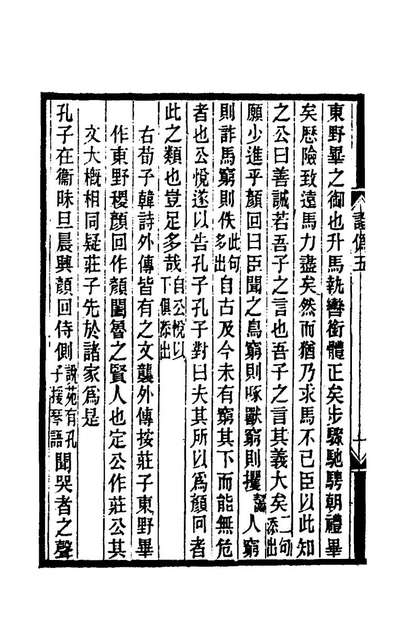 東野畢之御也升馬執轡銜體正矣步驟馳騁朝禮畢
矣歴險致遠馬力盡矣然而猶乃求馬不已臣以此知
之公曰善誠若吾子之言也吾子之言其義大矣二句添出
願少進乎顏回曰臣聞之鳥窮則啄獸窮則攫 人窮
則詐馬窮則佚此句多出自古及今未有窮其下而能無危
者也公悅遂以告孔子孔子對曰夫其所以爲顏回者
此之類也豈足多哉自公悅以下俱添出
右荀子韓詩外傳皆有之文襲外傳按莊子東野畢
作東野稷顏回作顏闔魯之賢人也定公作莊公其
文大槪相同疑莊子先於諸家爲是
孔子在衞昧旦晨興顏回侍側說苑有孔子援琴語聞哭者之聲